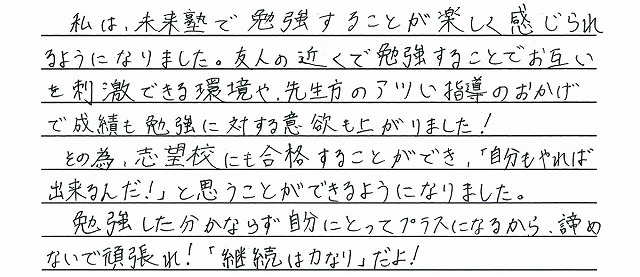 私は、未来塾で勉強することが楽しく感じられ
るようになりました。友人の近くで勉強することでお互い
を刺激できる環境や、先生方のアツい指導のおかげ
で成績も勉強に対する意欲も上がりました!
その為、志望校にも合格することができ、「自分もやれば
出来るんだ!」と思うことができるようになりました。
勉強した分かならず自分にとってプラスになるから、諦め
ないで頑張れ!「継続は力なり」だよ!